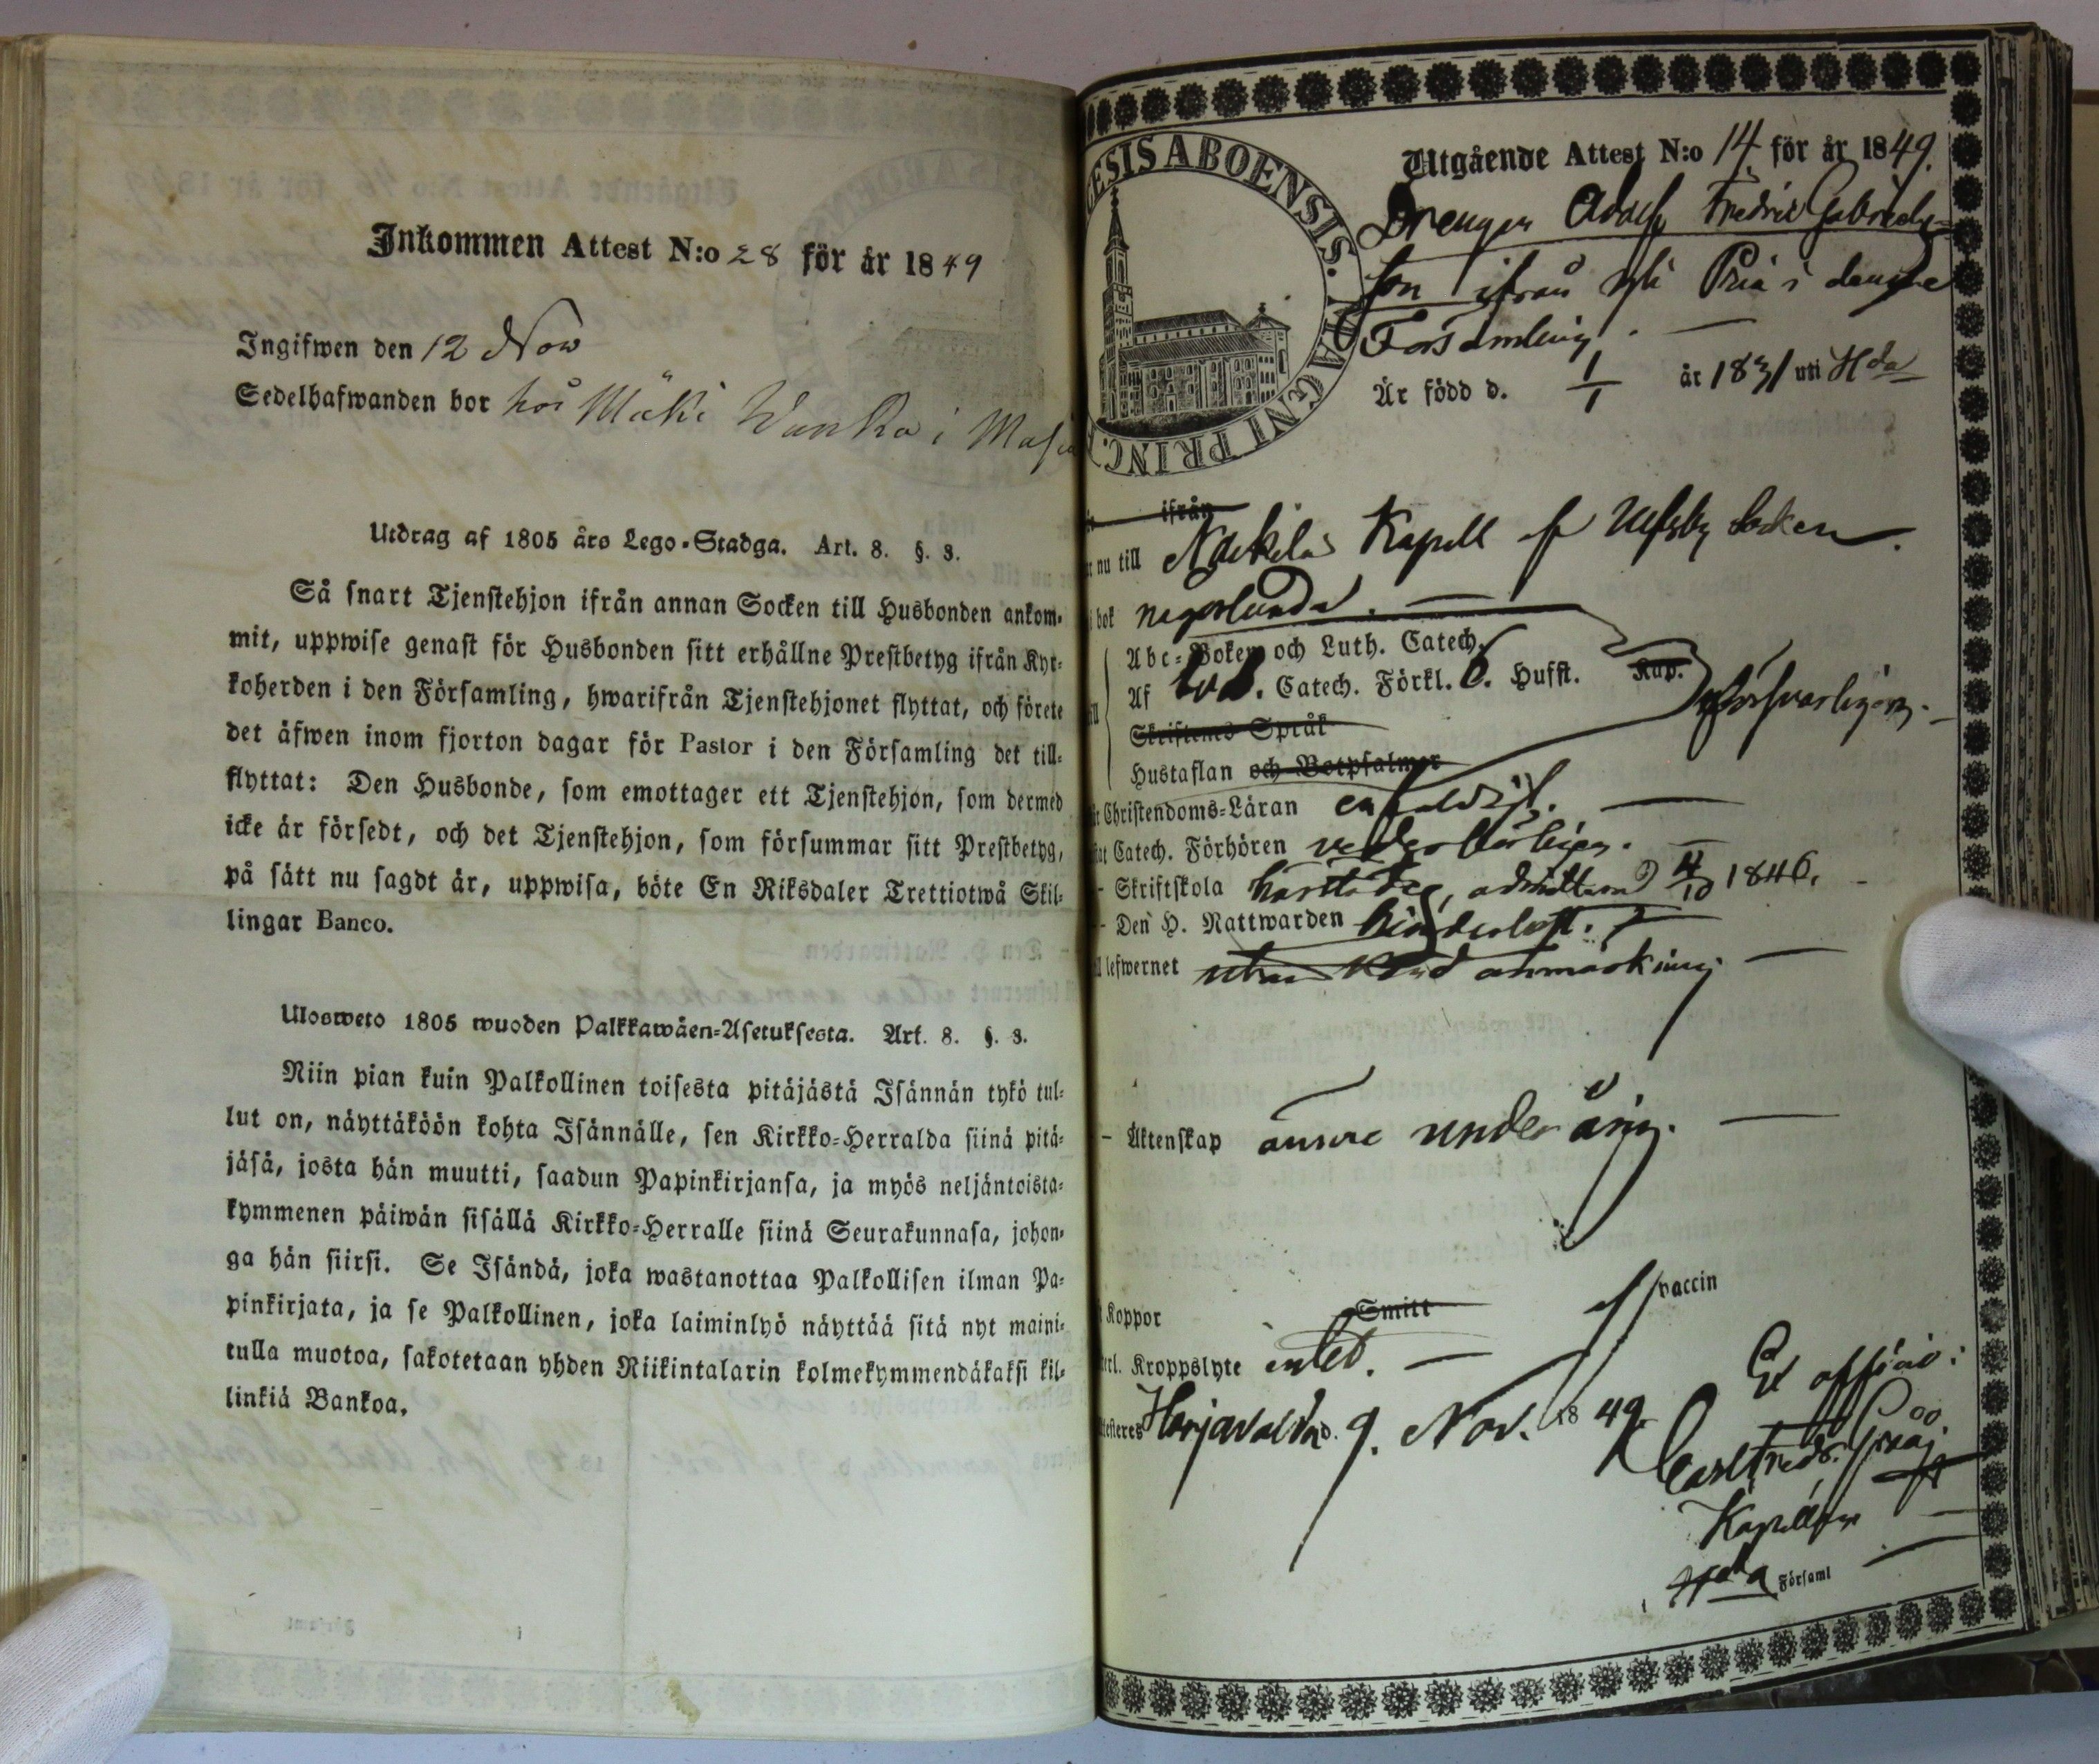 Inkommen Attest N:o 28 för år 1849
Ingifwen den 12 Nov
Sedelhafwanden bor hos Mäki Wanka i
Utdrag af 1805 års Lego-Stadga. Art. 8. §. 3.
Så snart Tjenstehjon ifrån annan Socken till Husbonden ankom-
mit, uppwise genast för Husbonden sitt erhållne Prestbetyg ifrån Kyr-
koherden i den Församling, hwarifrån Tjenstehjonet flyttat, och förete
det äfwen inom fjorton dagar för Pastor i den Församling det till-
flyttat: Den Husbonde, som emottager ett Tjenstehjon, som dermed
icke är försedt, och det Tjenstehjon, som försummar sitt Prestbetyg,
på sätt nu sagdt är, uppwisa, böte En Riksdaler Trettiotwå Skil-
lingar Banco.
Ulosweto 1805 wuoden Palkkawäen-Asetuksesta. Art. 8. §. 3.
Niin pian kuin Palkollinen toisesta pitäjästä Isännän tykö tul-
lut on, näyttäköön kohta Isännälle, sen Kirkko-Herralda siinä pitä-
jäsä, josta hän muutti, saadun Papinkirjansa, ja myös neljäntoista-
kymmenen päiwän sisällä Kirkko-Herralle siinä Seurakunnasa, johon-
ga hän siirsi. Se Isändä, joka wastanottaa Palkollisen ilman Pa-
pinkirjata, ja se Palkollinen, joka laiminlyö näyttää sitä nyt maini-
tulla muotoa, sakotetaan yhden Riikintalarin kolmekymmendäkaksi kil-
linkiä Bankoa.
ESIS ABOENSIS. MAGNI PRINC.
Utgående Attest N:o 14 för år 1849.
Drengen Adolf Fredric Gabriels-
son ifrån Pria i denne
Församling.
Är född d. 1/1 år 1831 uti Hda
ifrån
nu till Nackila Kapell af Ulfsby Socken.
bok någorlunda.
Abc-Boken och Luth. Catech.
Af Catech. Förkl. 6. Hufst. Kap. försvarligen.
Skriftenes Språk
Hustaflan och Botpsalmer
Christendoms-Läran enfaldigt.
Catech. Förhören vederbörligen.
- Skriftskola admitterad 4/10 1846.
- Den H. Nattwarden
lefwernet utan känd anmärkning
- Äktenskap ännu underårig.
Koppor Smitt af vaccin
Kroppslyte intet.
Harjavalda d. 9. Nov. 1849.
Ex officio:
Carl Fredr.
Kapellan
i Hda Församl